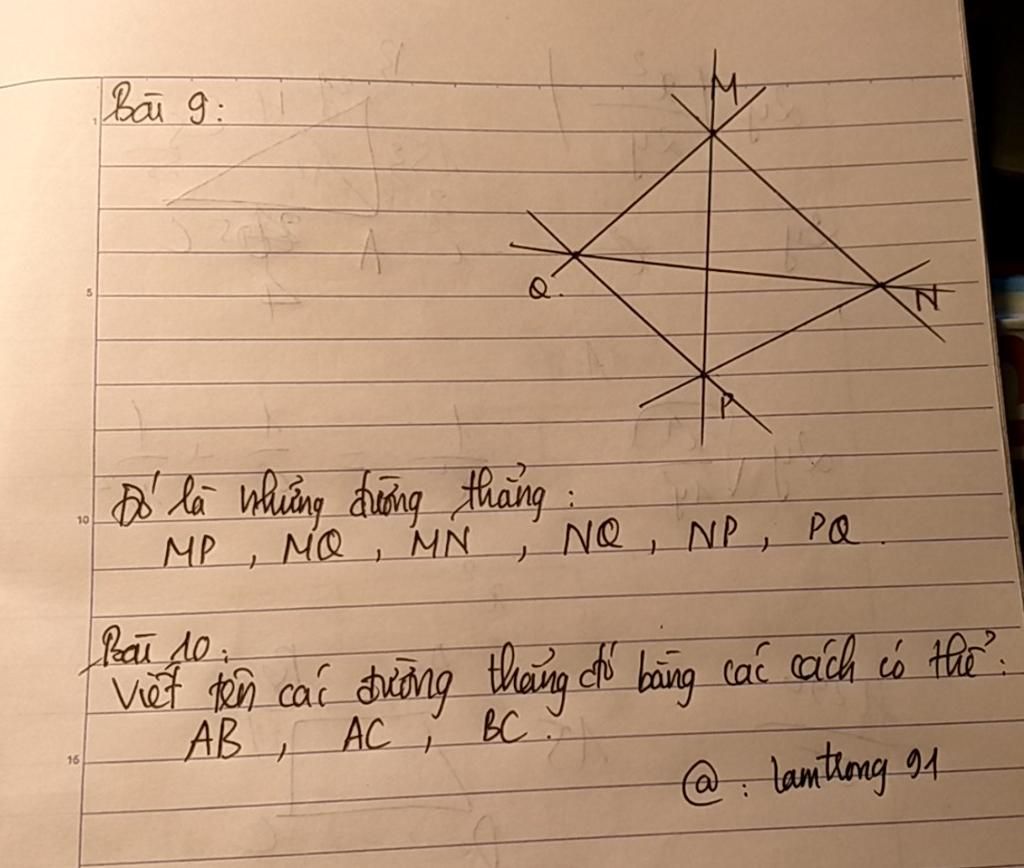 Bài 9:
M
Q.
N
P
Đó là những đường thẳng :
MP , MQ , MN , NQ , NP , PQ .
Bài 10:
Viết tên các đường thẳng đó bằng các cách có thể :
AB , AC , BC .
@ : lamtrong 91
1
5
10
15